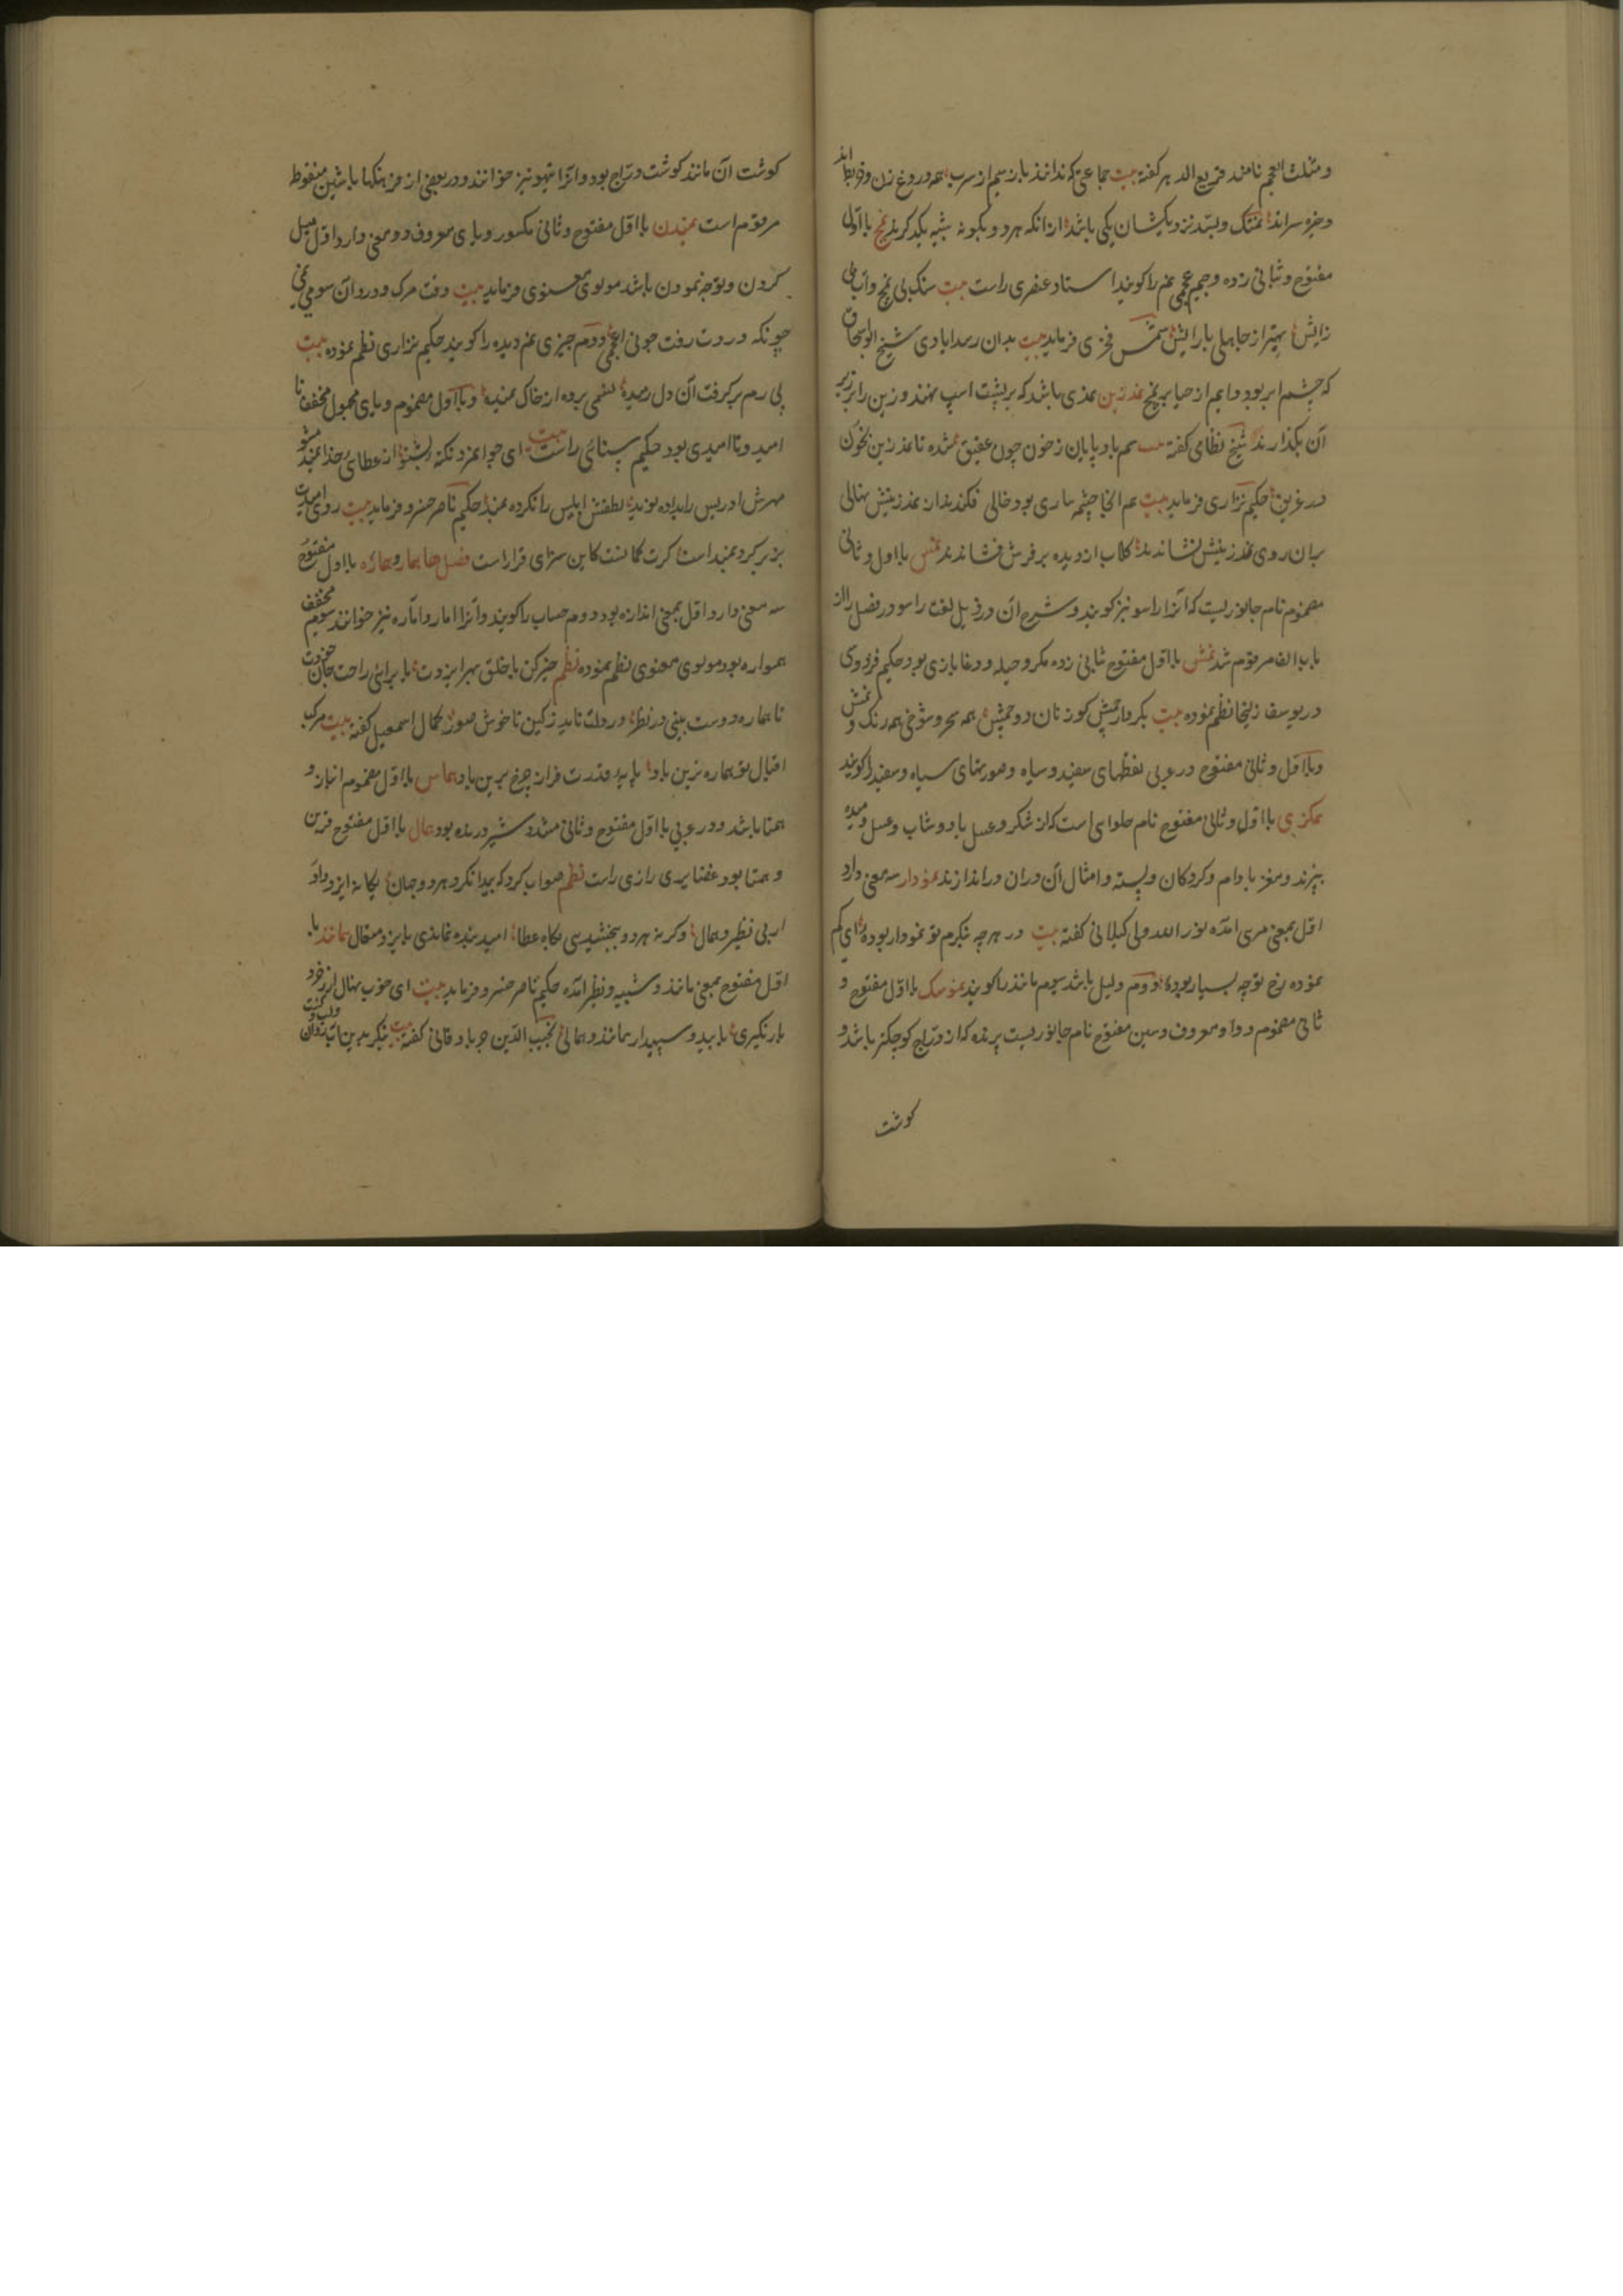 و مثلث العجم نامند قریع الدهر گفته بیت جماعتی که ندانند باز سیم از سرب همه دروغ زن و خربط اند
و خیره سراند نمتک و بسد نزدیکشان یکی باشد از آنکه هر دو بگونه شبیه یکدگرند نمج با اول
مفتوح و ثانی زده و جیم عجمی نم را گویند استاد عنصری راست بیت سنک بی نمج و آب بی
زایش بهتر از جاهلی بارایش شمس فخری فرماید بیت بدان رسد ابادی شیخ ابو اسحاق
که چشم ابر بود دایم از حیا بر نمج نمدزین نمدی باشد که بر پشت اسپ نهند و زین را بر زبر
آن بگذارند شیخ نظامی گفته بیت سم بادپایان ز خون چون عقیق شده تا نمدزین بخون
در غریق حکیم نزاری فرماید بیت هم انجا چشمه ساری بود خالی فکند بدان نمدزینش نهالی
بران روی نمدزینش نشاندند گلاب از دیده بر فرش فشاندند نمس با اول و ثانی
مضموم نام جانوریست که آنرا راسو نیز گویند و شرح آن در ذیل لغت راسو در فصل را از
باب الف مرقوم شد نمش با اول مفتوح ثانی زده مکر و حیله و دغا بازی بود حکیم فردوسی
در یوسف زلیخا نظم نموده بیت بکردار چشم گوزنان دو چشمش همه سحر و شوخی همه رنگ و نمش
و با اول و ثانی مفتوح در عربی نقطهای سفید و سیاه و صورتهای سیاه و سفید را گویند
نمکزی با اول و ثانی مفتوح نام حلوای است که از شکر و عسل یا دوشاب و عسل و میده
بپزند و مغز بادام و گردکان و پسته و امثال آن دران در اندازند نمودار سه معنی دارد
اول بمعنی مرئی آمده نورالله ولی گیلانی گفته بیت در هرچه نکرم تو نمودار بوده ای کم
نموده رخ تو چه بسیار بوده دوم دلیل باشد سیم مانند را گویند نموسک با اول مفتوح و
ثانی مضموم و واو معروف و سین مفتوح نام جانوریست پرنده که از درّاج کوچکتر باشد و
گوشت
گوشت آن مانند گوشت درّاج بود و آنرا تیهو نیز خوانند و در بعضی از فرهنگها با شین منقوط
مرقوم است نمیدن با اول مفتوح و ثانی مکسور و یای معروف دو معنی دارد اول میل
کردن و توجه نمودن باشد مولوی معنوی فرماید بیت وقت مرگ و درد آن سو می نمی
چونکه دردت رفت چونی اعجمی دوم چیزی نم دیده را گویند حکیم نزاری نظم نموده بیت
پی رم بر گرفت آن دل رمیده نمی برده از خاک نمیده و با اول مضموم و یای مجهول مخفف نا
امید و ناامیدی بود حکیم سنائی راست بیت ای جوانمرد نکته بشنو از عطای خدا نمید مشو
مهرش ادریس را بداده نوید لطفش ابلیس را نکرده نمید حکیم ناصر خسرو فرماید بیت روی امیدت
بزیر گرد نمیداست گرت گمانست کاین سزای قرار است فصل ها همار و هماره با اول مفتوح
سه معنی دارد اول بمعنی اندازه بود دوم حساب را گویند و آنرا امار و آماره نیز خوانند سوم مخفف
همواره بود مولوی معنوی نظم نموده نظم خیر کن با خلق بهر ایزدت یا برای راحت جان خودت
تا هماره دوست بینی در نظر در دلت ناید ز کین ناخوش صور کمال اسمعیل گفته بیت مرکب
اقبال تو هماره بزین باد پایه قدرت فراز چرخ برین باد هماس با اول مضموم انباز و
همتا باشد و در عربی با اول مفتوح و ثانی مشدد شیر درنده بود همال با اول مفتوح قرین
و همتا بود غضایری رازی راست نظم صواب کرد که پیدا نکرد هر دو جهان یگانه ایزد دادار
بی نظیر و همال و گرنه هر دو ببخشیدی بگاه عطا امید بنده نماندی بایزد متعال همانند با
اول مفتوح بمعنی مانند و شبیه و نظیر آمده حکیم ناصر خسرو فرماید بیت ای خوب نهال ار ز خرد
بار نگیری با بید و سپیدار همانند و همالی نجیب الدین جرباد قانی گفته بیت بنگر بدین